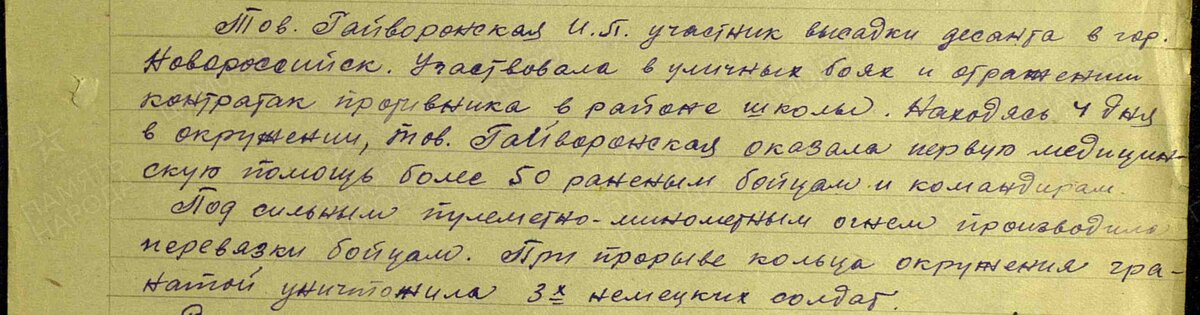 Тов. Гайворонская И.П. участник высадки десанта в гор.
Новороссийск. Участвовала в уличных боях и отражении
контратак противника в районе школы. Находясь 4 дня
в окружении, тов. Гайворонская оказала первую медицин-
скую помощь более 50 раненым бойцам и командирам.
Под сильным пулеметно-минометным огнем производила
перевязки бойцам. При прорыве кольца окружения гра-
натой уничтожила 3х немецких солдат.